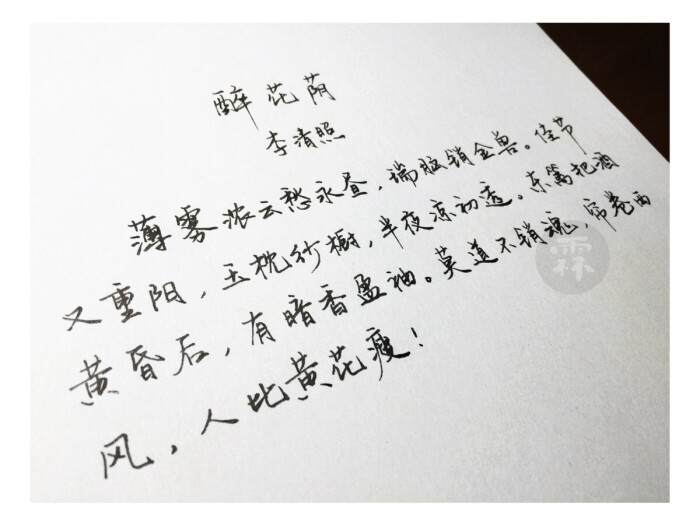 醉花荫
李清照
薄雾浓云愁永昼，瑞脑销金兽。佳节
又重阳，玉枕纱橱，半夜凉初透。东篱把酒
黄昏后，有暗香盈袖。莫道不销魂，帘卷西
风，人比黄花瘦！
霖